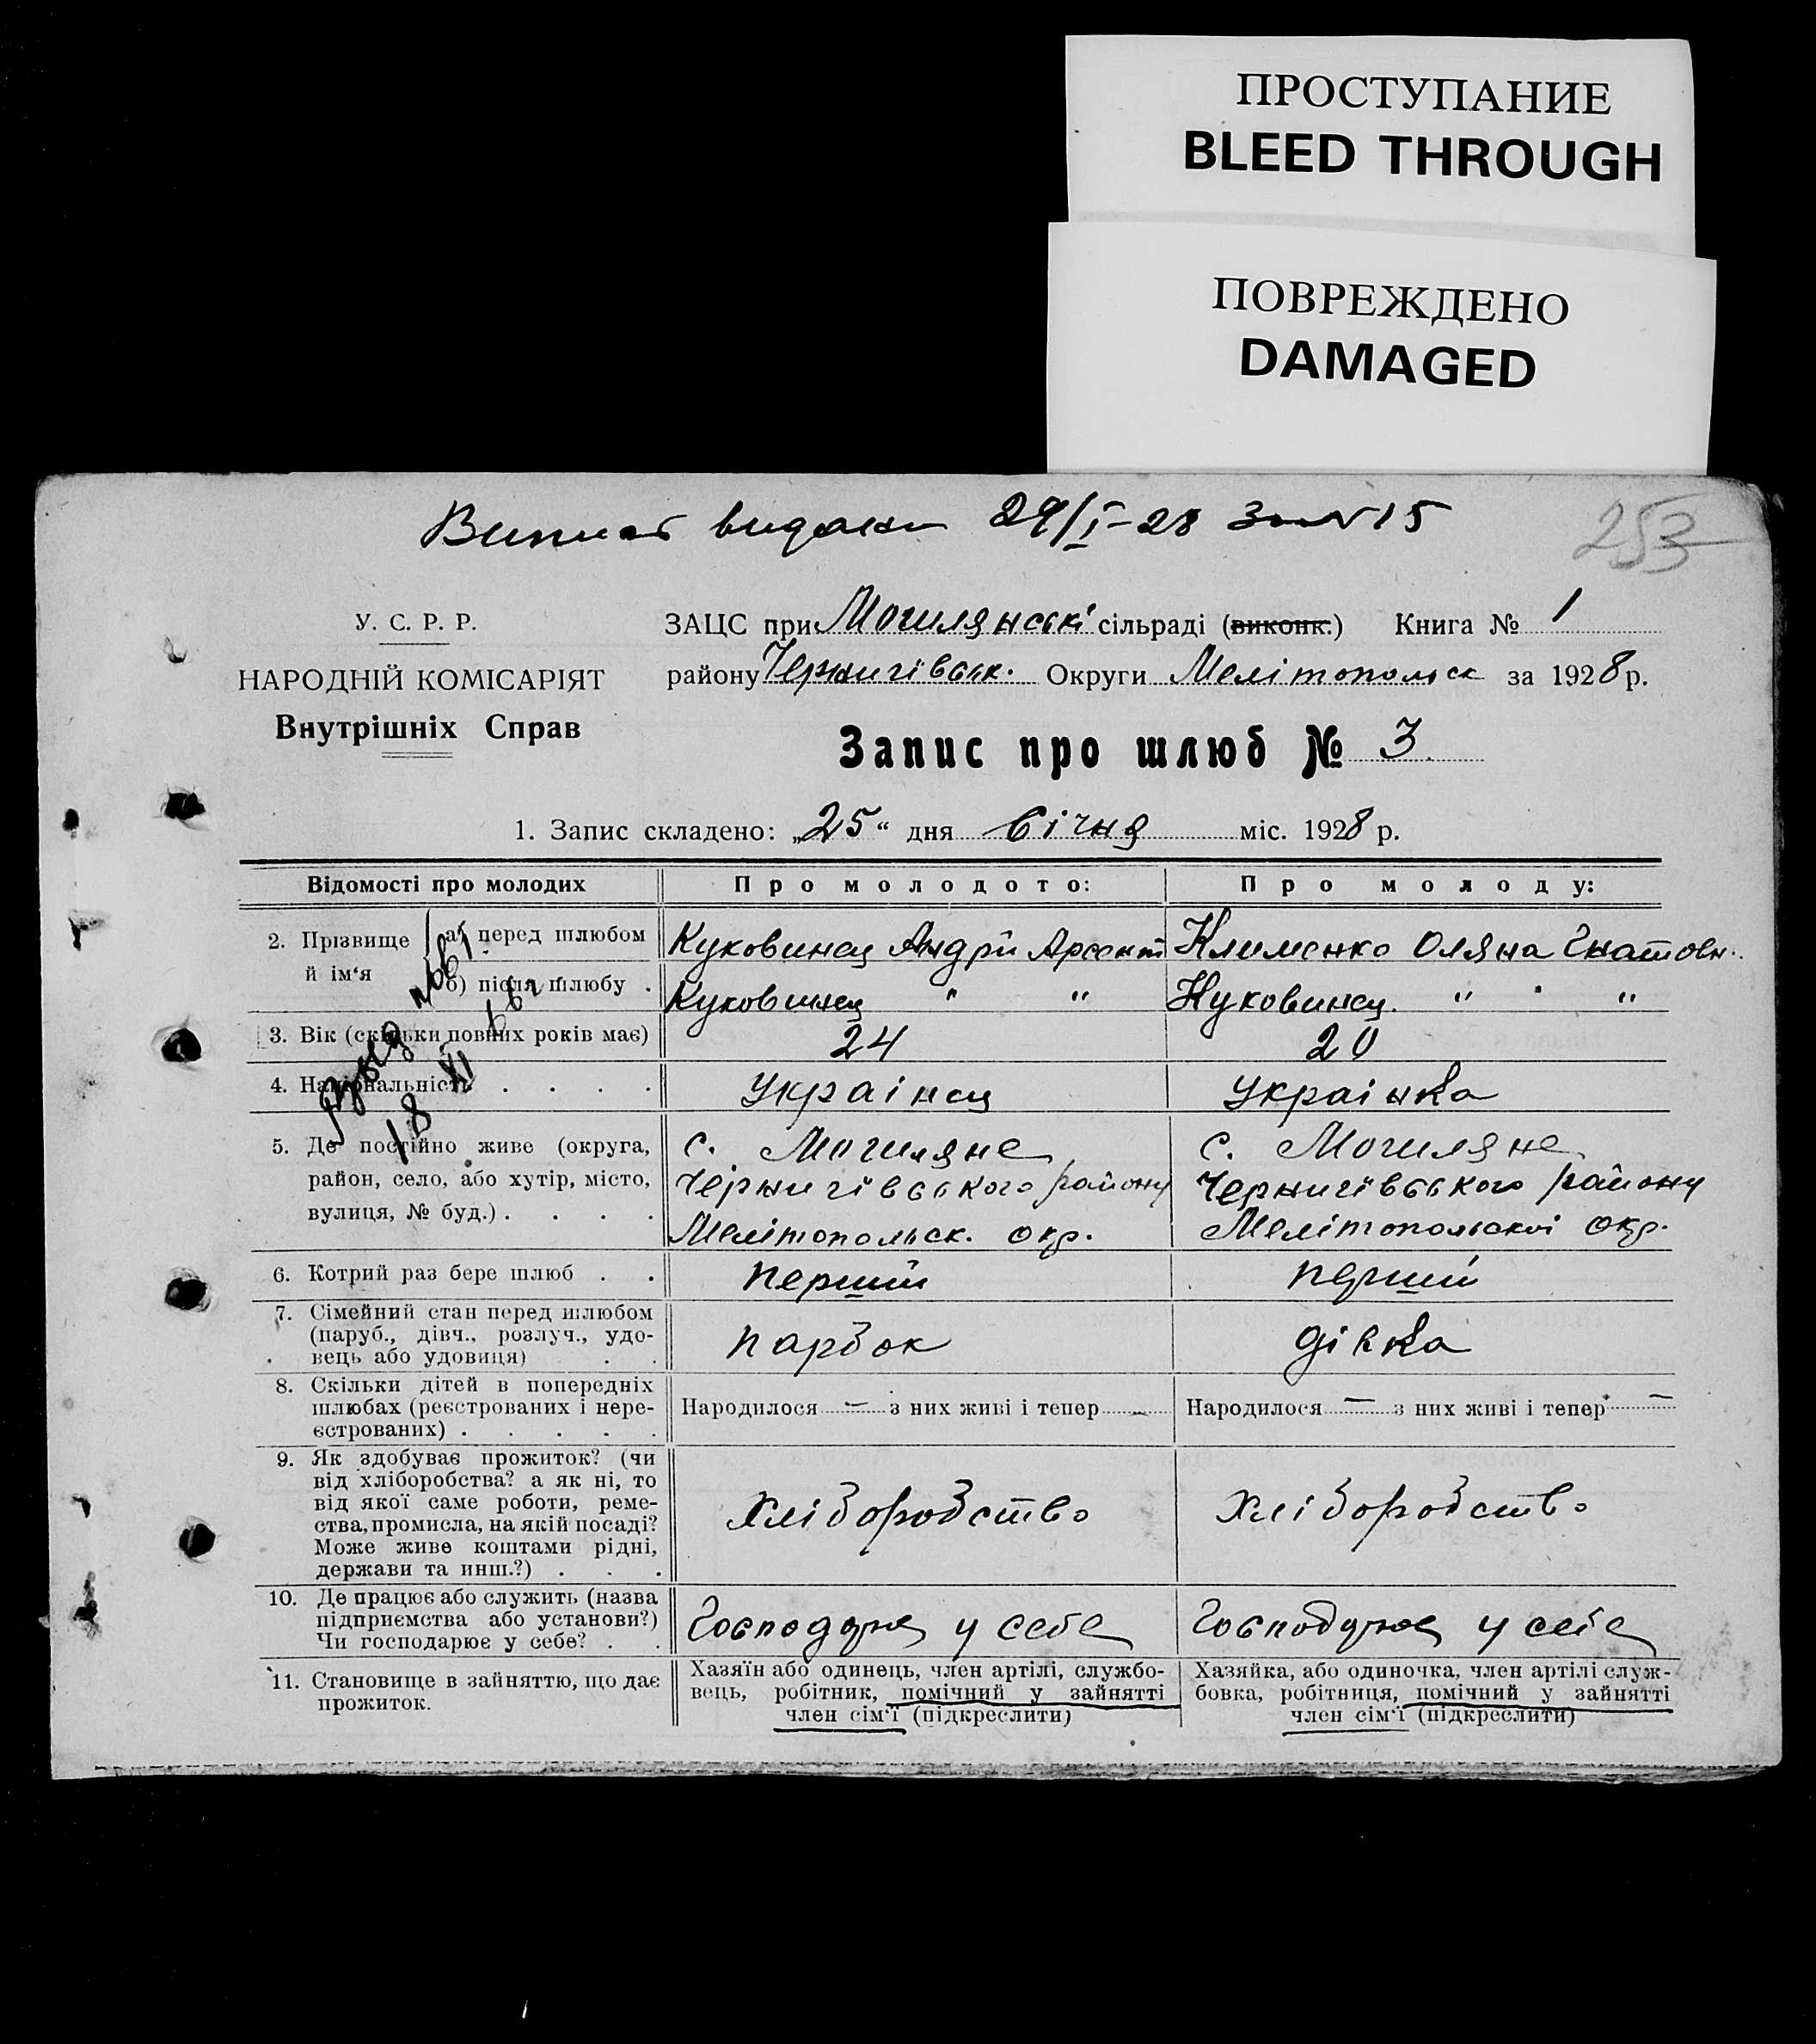 ПРОСТУПАНИЕ
BLEED THROUGH
ПОВРЕЖДЕНО
DAMAGED
29/I-28 15
253
У. С. Р. Р.
НАРОДНІЙ КОМІСАРІЯТ
Внутрішніх Справ
ЗАЦС при Могилянські сільраді (виконк.) Книга № 1
району Чернигівськ. Округи Мелітопольск за 1928 р.
Запис про шлюб № 3.
1. Запис складено: „25“ дня Січня міс. 1928 р.
Відомості про молодих
Про молодого:
Про молоду:
2. Прізвище й ім‘я
а) перед шлюбом
Куковинец Андрій Арсент
Клименко Оляна Гнатовн.
б) після шлюбу .
Куковинец " "
Куковинец. " " "
3. Вік (скільки повних років має)
24
20
4. Національність . . . .
Украінец
Украінка
5. Де постійно живе (округа,
район, село, або хутір, місто,
вулиця, № буд.) . . . .
с. Могиляне
Чернигівського району
Мелітопольск. окр.
с. Могиляне
Чернигівського району
Мелітопольскоі окр.
6. Котрий раз бере шлюб . .
перший
перший
7. Сімейний стан перед шлюбом
(паруб., дівч., розлуч., удо-
вець або удовиця) . .
парбок
дівка
8. Скільки дітей в попередніх
шлюбах (реєстрованих і нере-
єстрованих) . . . . .
Народилося — з них живі і тепер —
Народилося — з них живі і тепер —
9. Як здобуває прожиток? (чи
від хліборобства? а як ні, то
від якої саме роботи, реме-
ства, промисла, на якій посаді?
Може живе коштами рідні,
держави та инш.?) . . .
Хліборобство
Хліборобство
10. Де працює або служить (назва
підприємства або установи?)
Чи господарює у себе? . .
Господарює у себе
Господарює у себе
11. Становище в зайняттю, що дає
прожиток.
Хазяїн або одинець, член артілі, службо-
вець, робітник, помічний у зайнятті
член сім‘ї (підкреслити)
Хазяйка, або одиночка, член артілі служ-
бовка, робітниця, помічний у зайнятті
член сім‘ї (підкреслити)